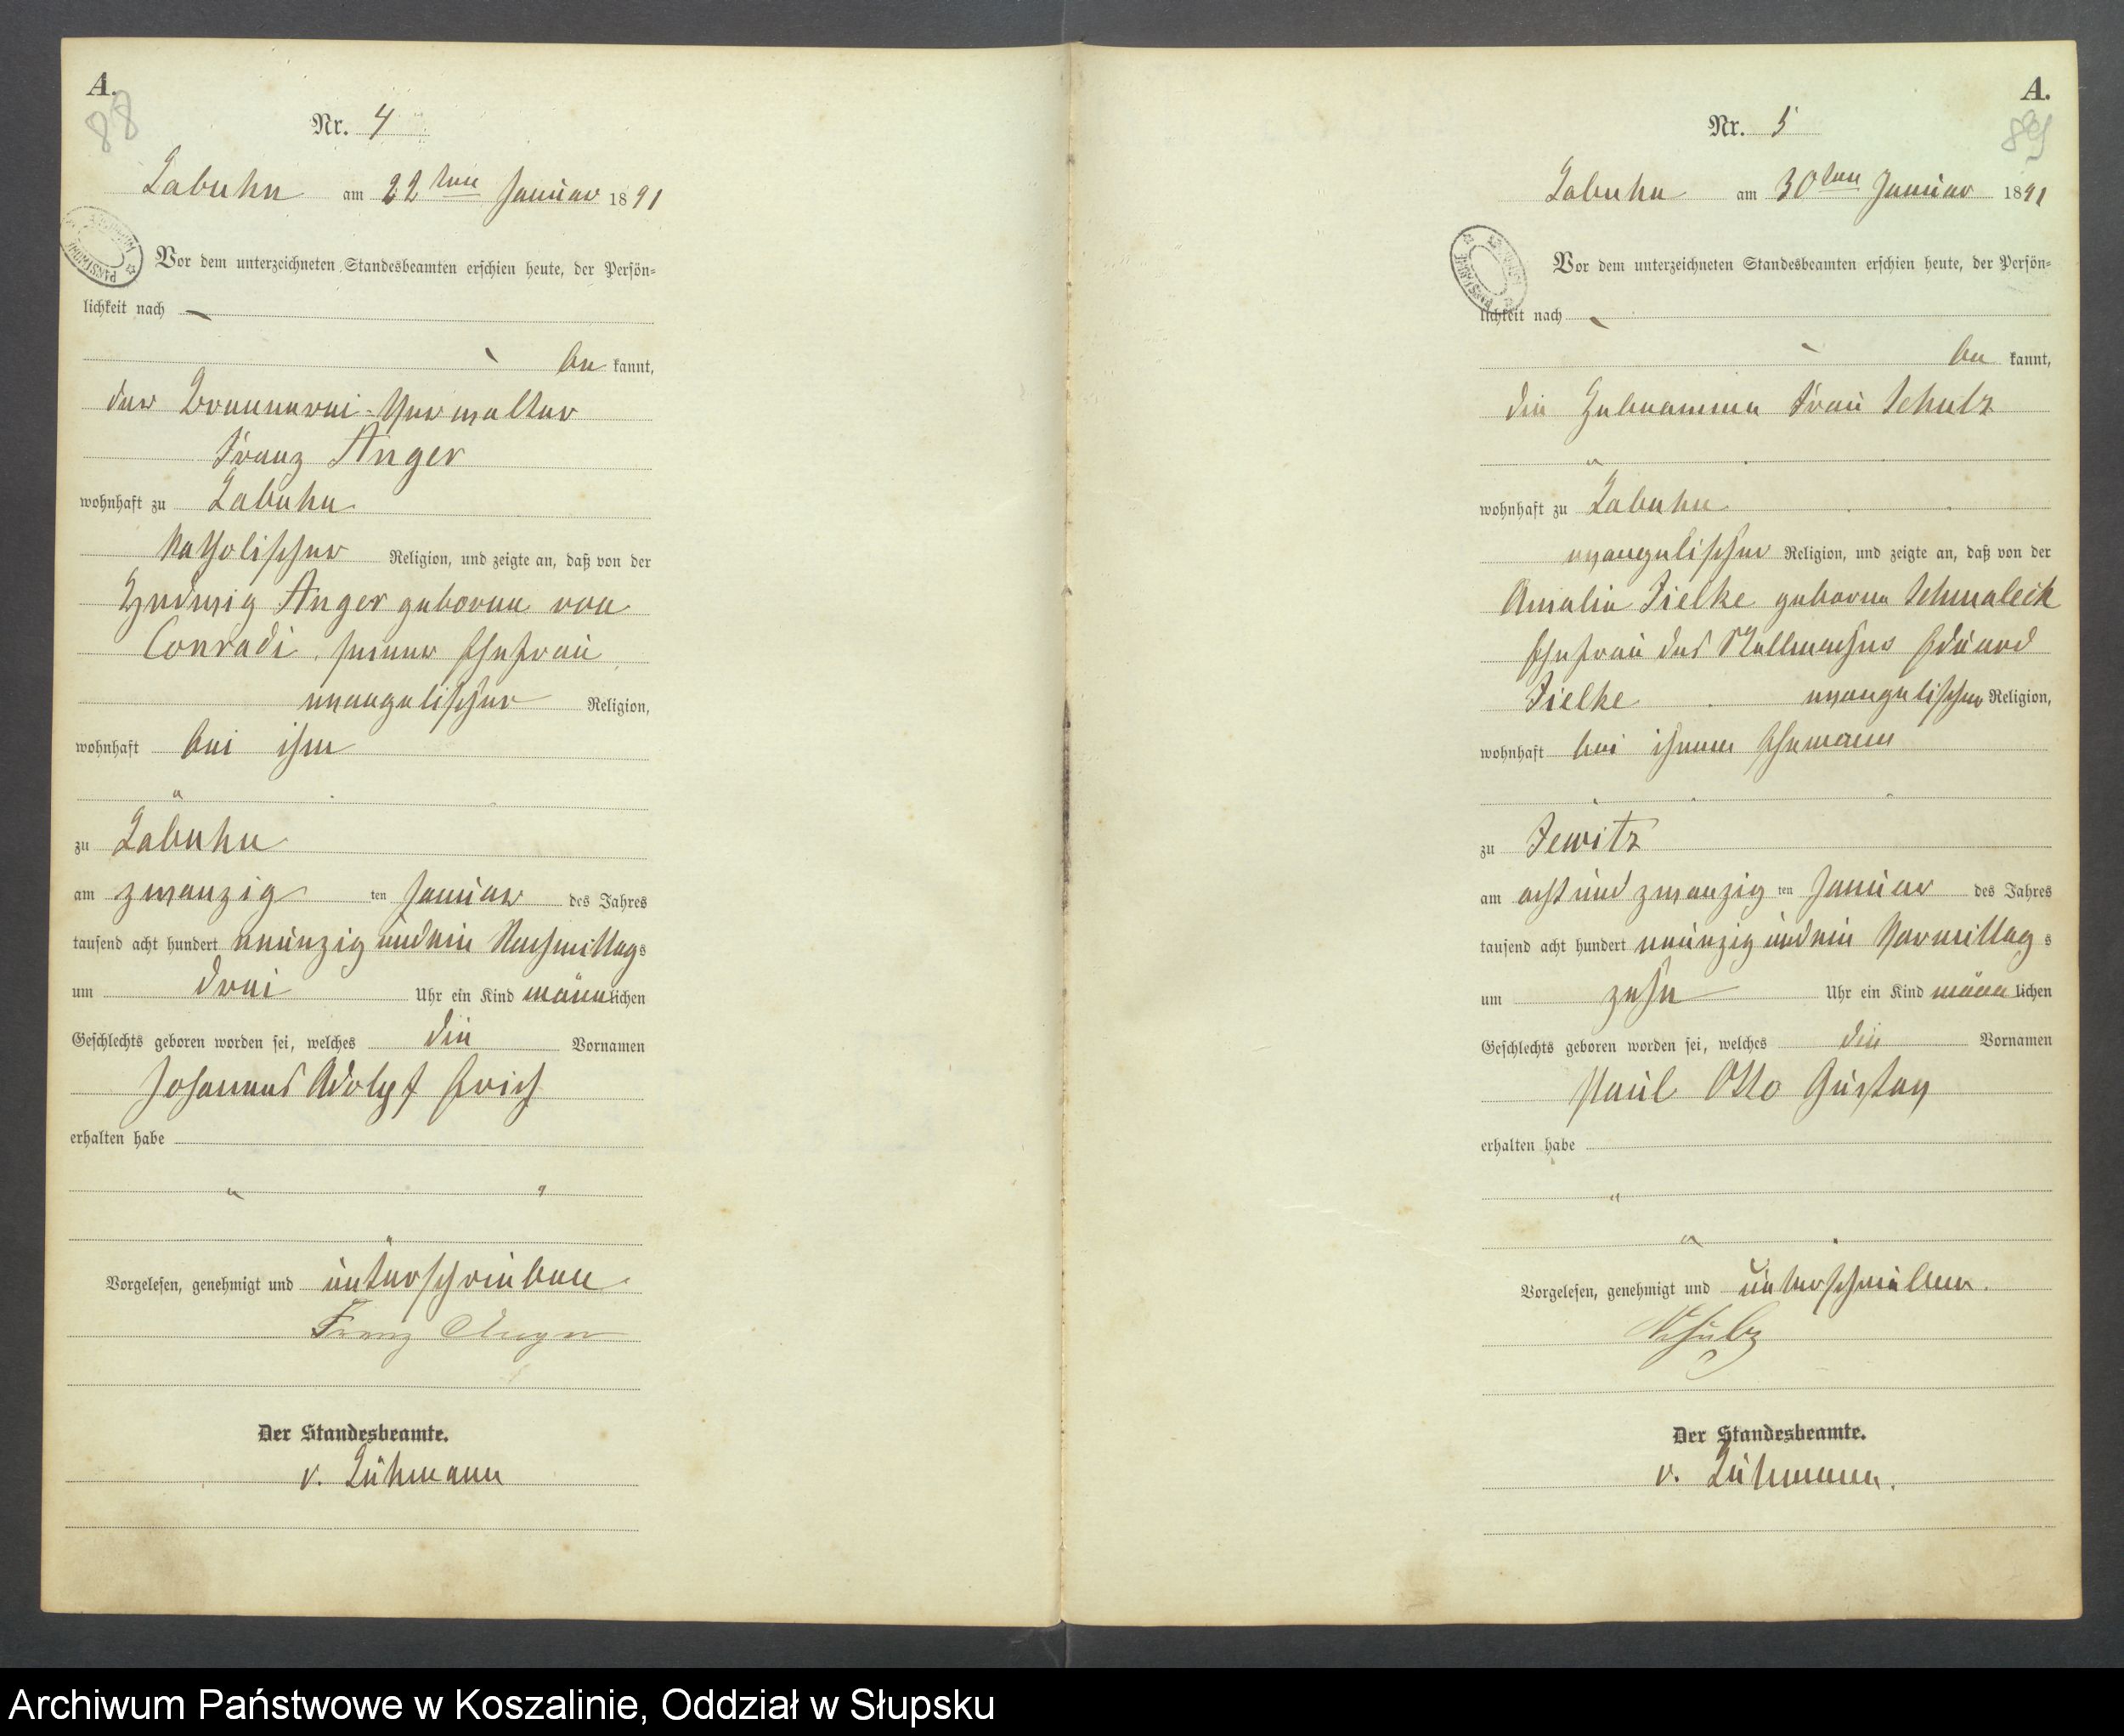 A.
88
Nr. 4
Labuhn am 22ten Januar 1891
Vor dem unterzeichneten Standesbeamten erschien heute, der Persön=
lichkeit nach
be kannt,
der Brennerei-Verwalter
Franz Anger
wohnhaft zu Labuhn
katholischer Religion, und zeigte an, daß von der
Hedwig Anger geborene von
Conradi, seiner Ehefrau
evangelischer Religion,
wohnhaft bei ihm
zu Labuhn
am zwanzig ten Januar des Jahres
tausend acht hundert neunzig und ein Nachmittags
um drei Uhr ein Kind männlichen
Geschlechts geboren worden sei, welches die Vornamen
Johannes Adolph Erich
erhalten habe
Vorgelesen, genehmigt und unterschrieben.
Franz Anger
Der Standesbeamte.
v. Lühmann
A.
89
Nr. 5
Labuhn am 30ten Januar 1891
Vor dem unterzeichneten Standesbeamten erschien heute, der Persön=
lichkeit nach
be kannt,
die Hebeamme Frau Schulz
wohnhaft zu Labuhn
evangelischer Religion, und zeigte an, daß von der
Amalie Zielke geborene Schmaleck
Ehefrau des Stellmachers Eduard
Zielke evangelischer Religion,
wohnhaft bei ihrem Ehemann
zu Zewitz
am acht und zwanzig ten Januar des Jahres
tausend acht hundert neunzig und ein Vormittag s
um zehn Uhr ein Kind männ lichen
Geschlechts geboren worden sei, welches die Vornamen
Paul Otto Gustav
erhalten habe
Vorgelesen, genehmigt und unterschrieben.
Schulz
Der Standesbeamte.
v. Lühmann.
Archiwum Państwowe w Koszalinie, Oddział w Słupsku